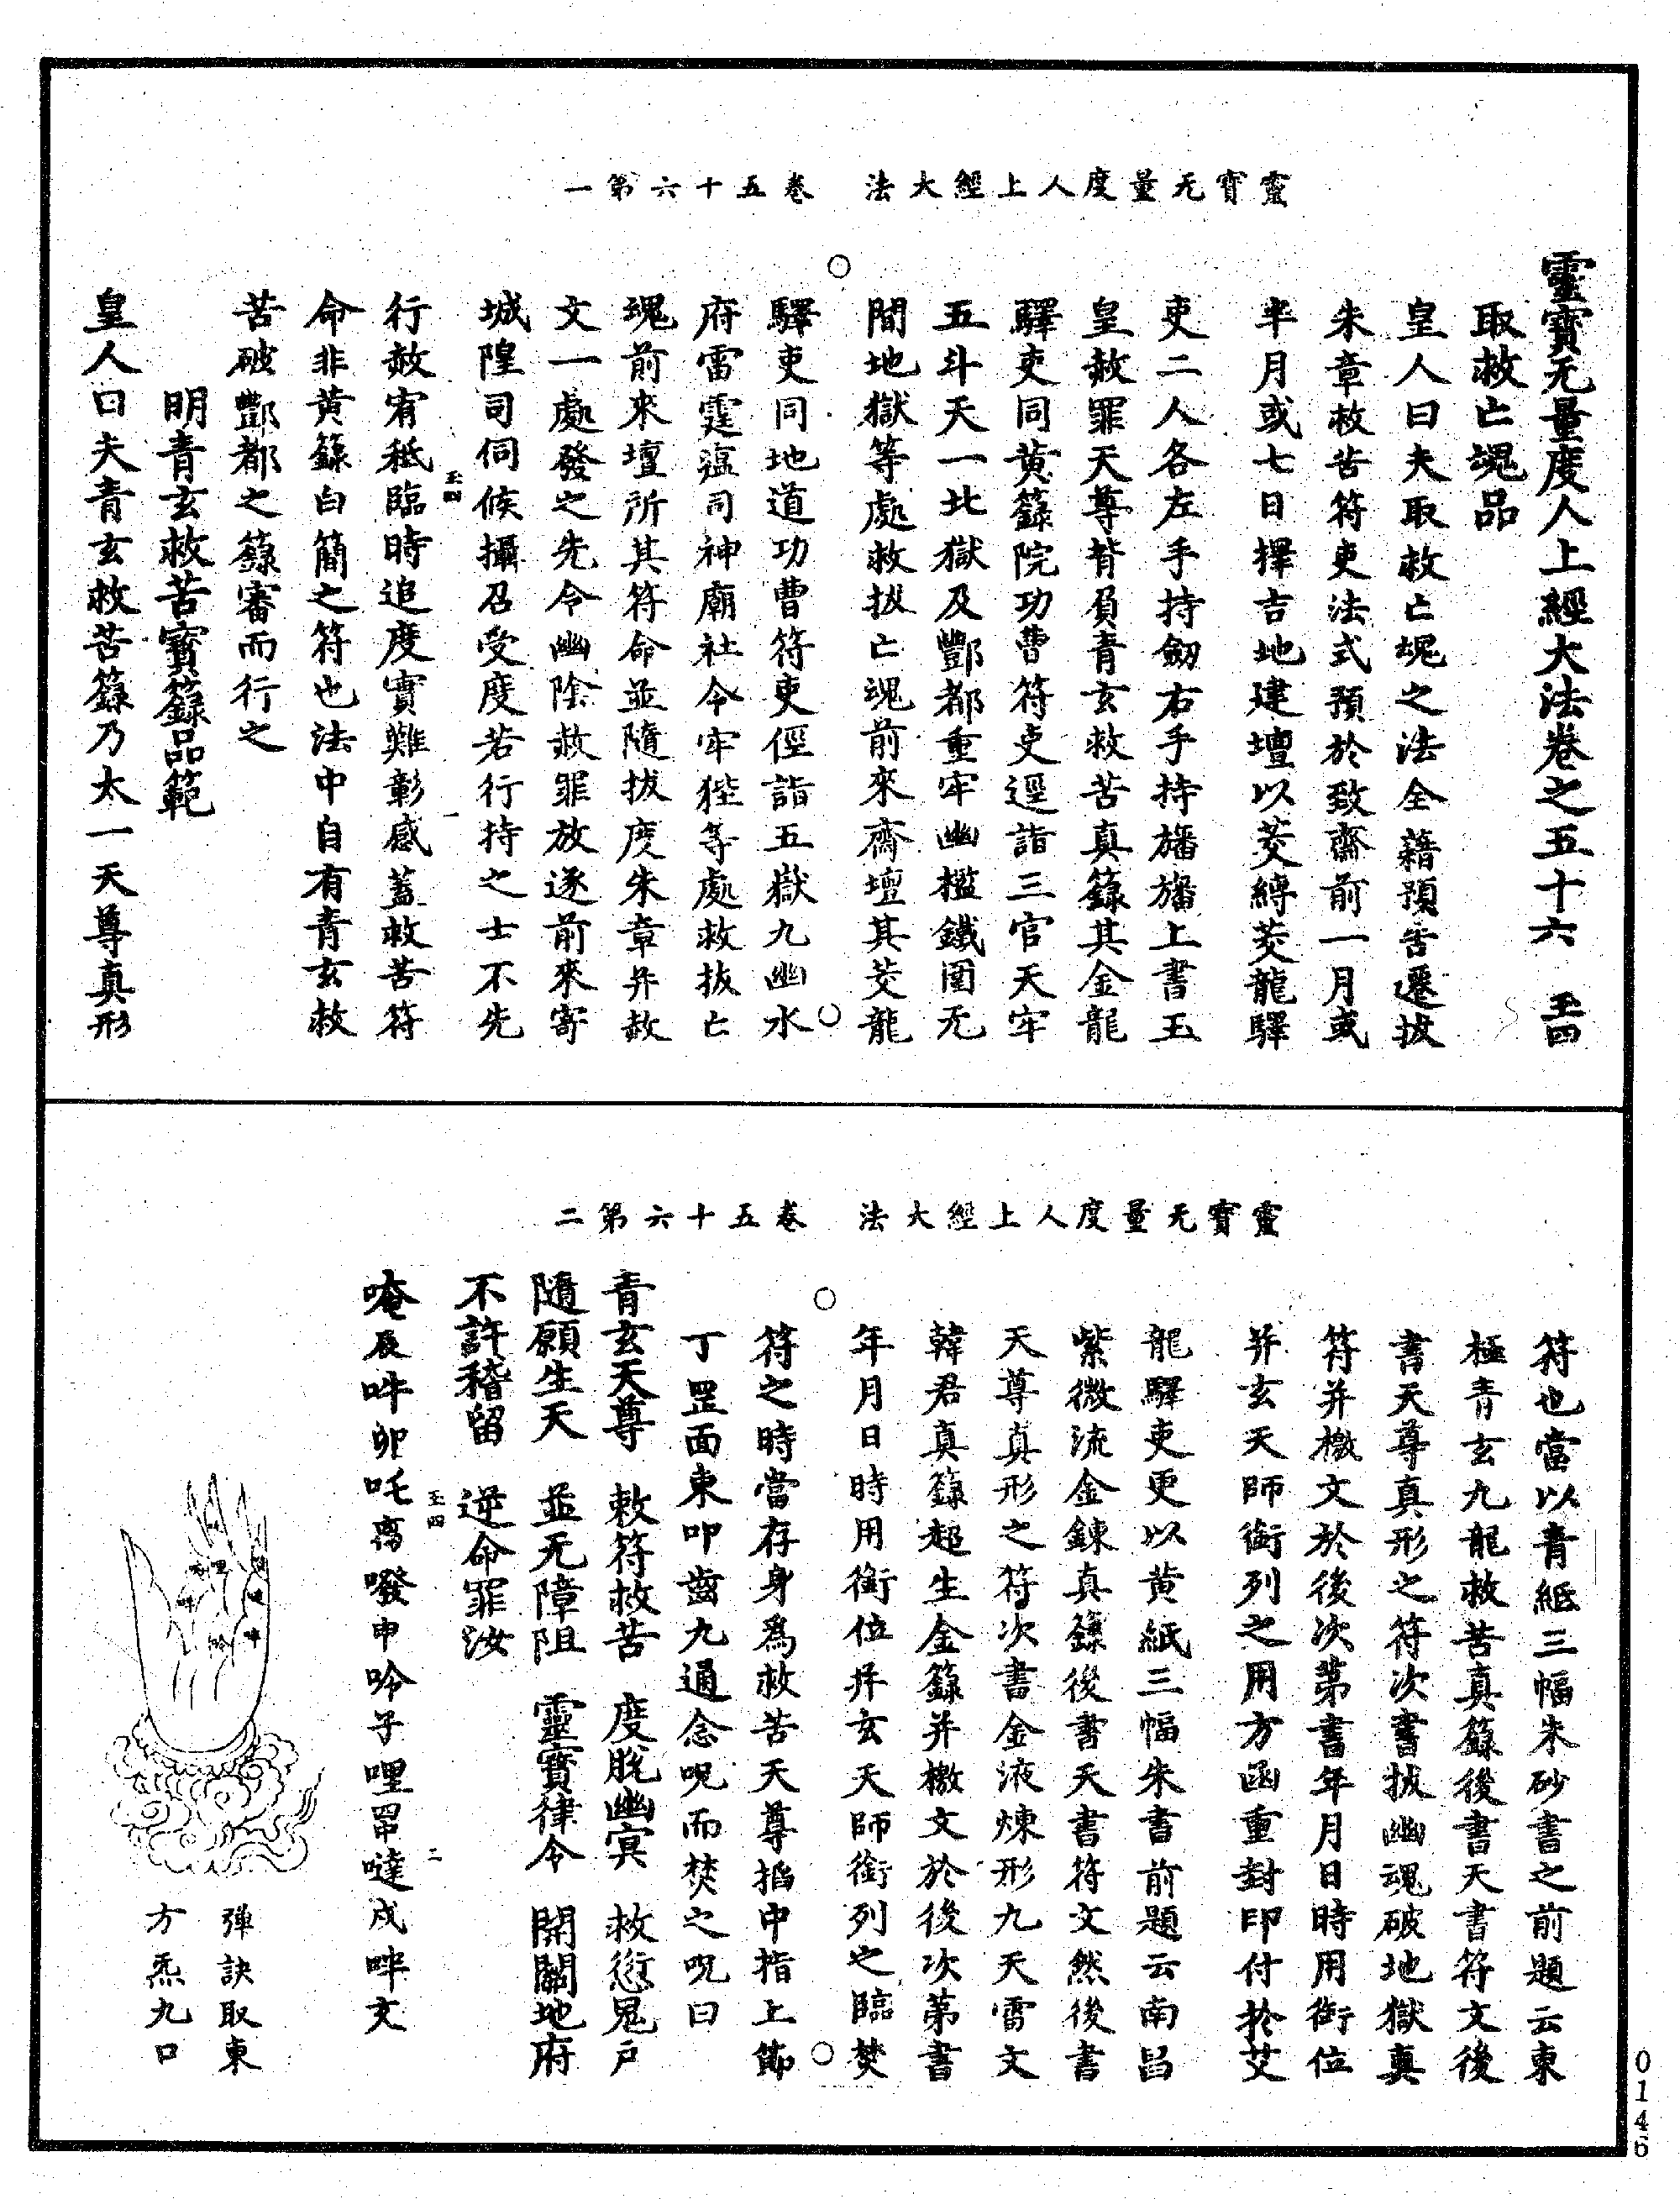 靈寶无量度人上經大法　卷五十六第一
靈寶无量度人上經大法卷之五十六　玉四
取救亡魂品
皇人曰夫取救亡魂之法全藉預告遷拔
朱章救苦符吏法式預於致齋前一月或
半月或七日擇吉地建壇以茭縛茭龍驛
吏二人各左手持劒右手持旛旛上書玉
皇赦罪天尊背負青玄救苦真籙其金龍
驛吏同黃籙院功曹符吏逕詣三官天牢
五斗天一北獄及酆都重牢幽檻鐵圍无
間地獄等處救拔亡魂前來齋壇其茭龍
驛吏同地道功曹符吏徑詣五嶽九幽水
府雷霆瘟司神廟社令牢狴等處救拔亡
魂前來壇所其符命並隨拔度朱章并赦
文一處發之先令幽陰赦罪放逐前來寄
城隍司伺候攝召受度若行持之士不先
行赦宥秪臨時追度實難彰感蓋救苦符
命非黃籙白簡之符也法中自有青玄救
苦破酆都之籙審而行之
明青玄救苦寶籙品範
皇人曰夫青玄救苦籙乃太一天尊真形
玉四　一
靈寶无量度人上經大法　卷五十六第二
符也當以青紙三幅朱砂書之前題云東
極青玄九龍救苦真籙後書天書符文後
書天尊真形之符次書拔幽魂破地獄真
符并檄文於後次第書年月日時用銜位
并玄天師銜列之用方函重封印付於茭
龍驛吏更以黃紙三幅朱書前題云南昌
紫微流金鍊真籙後書天書符文然後書
天尊真形之符次書金液煉形九天雷文
韓君真籙超生金籙并檄文於後次第書
年月日時用銜位并玄天師銜列之臨焚
符之時當存身為救苦天尊掐中指上節
丁罡面東叩齒九通念呪而焚之呪曰
青玄天尊　敕符救苦　度脫幽冥　救愆鬼戶
隨願生天　並无障阻　靈寶律令　開闢地府
不許稽留　逆命罪汝
唵辰吽卯吒离㗶申呤子哩罡噠戌吽文
玉四　二
彈訣取東
方炁九口
0146